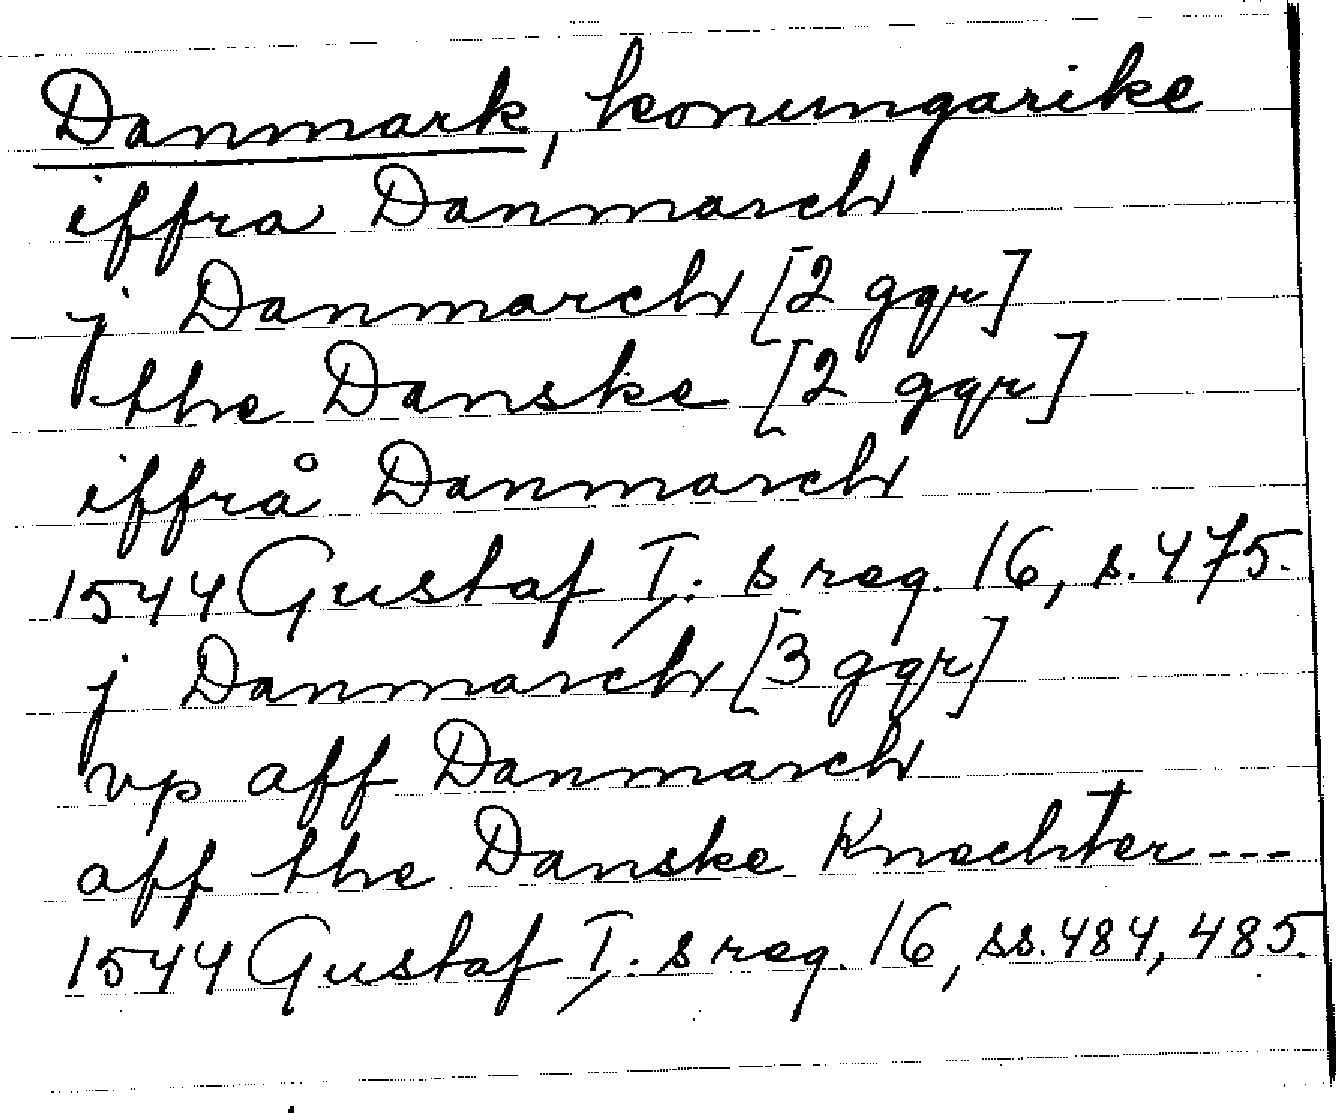 Danmark, konungarike
iffra Danmarch
j Danmarch [2 ggr]
the Danske [2 ggr]
iffrå Danmarch
1544 Gustaf I: s reg. 16, s. 475.
j Danmarch [3 ggr]
vp aff Danmarch
aff the Danske Knechter---
1544 Gustaf I: s reg. 16, ss. 484, 485.